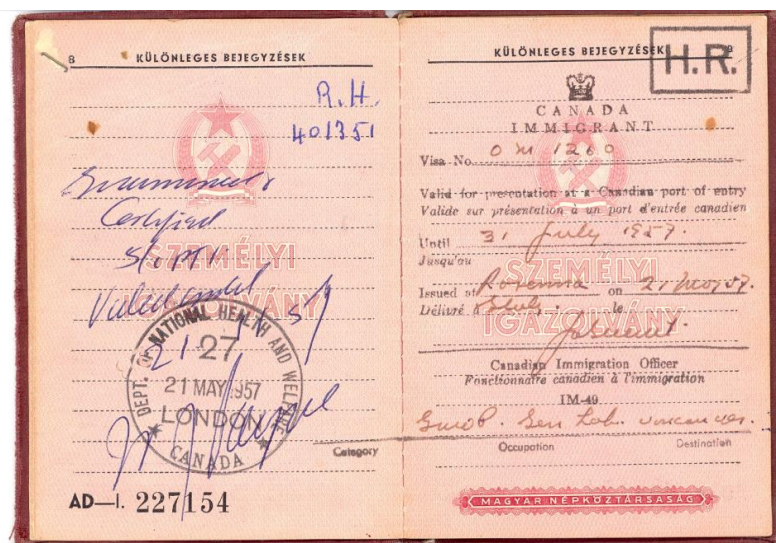 8
KÜLÖNLEGES BEJEGYZÉSEK
R.H.
401351
Certified
SZEMÉLYI
IGAZOLVÁNY
DEPT. OF NATIONAL HEALTH AND WELFARE
27
21 MAY 1957
LONDON
CANADA
AD—I. 227154
KÜLÖNLEGES BEJEGYZÉSEK
9
H.R.
CANADA
IMMIGRANT
Visa No. 1260
Valid for presentation at a Canadian port of entry
Valide sur présentation à un port d'entrée canadien
Until 31 July 1957.
Jusqu'au
SZEMÉLYI
Issued at on 21 May 57.
Délivré à Italy. le
IGAZOLVÁNY
Canadian Immigration Officer
Fonctionnaire canadien à l'immigration
IM-49
Gen Lab. Vancouver.
Category Occupation Destination
MAGYAR NÉPKÖZTÁRSASÁG